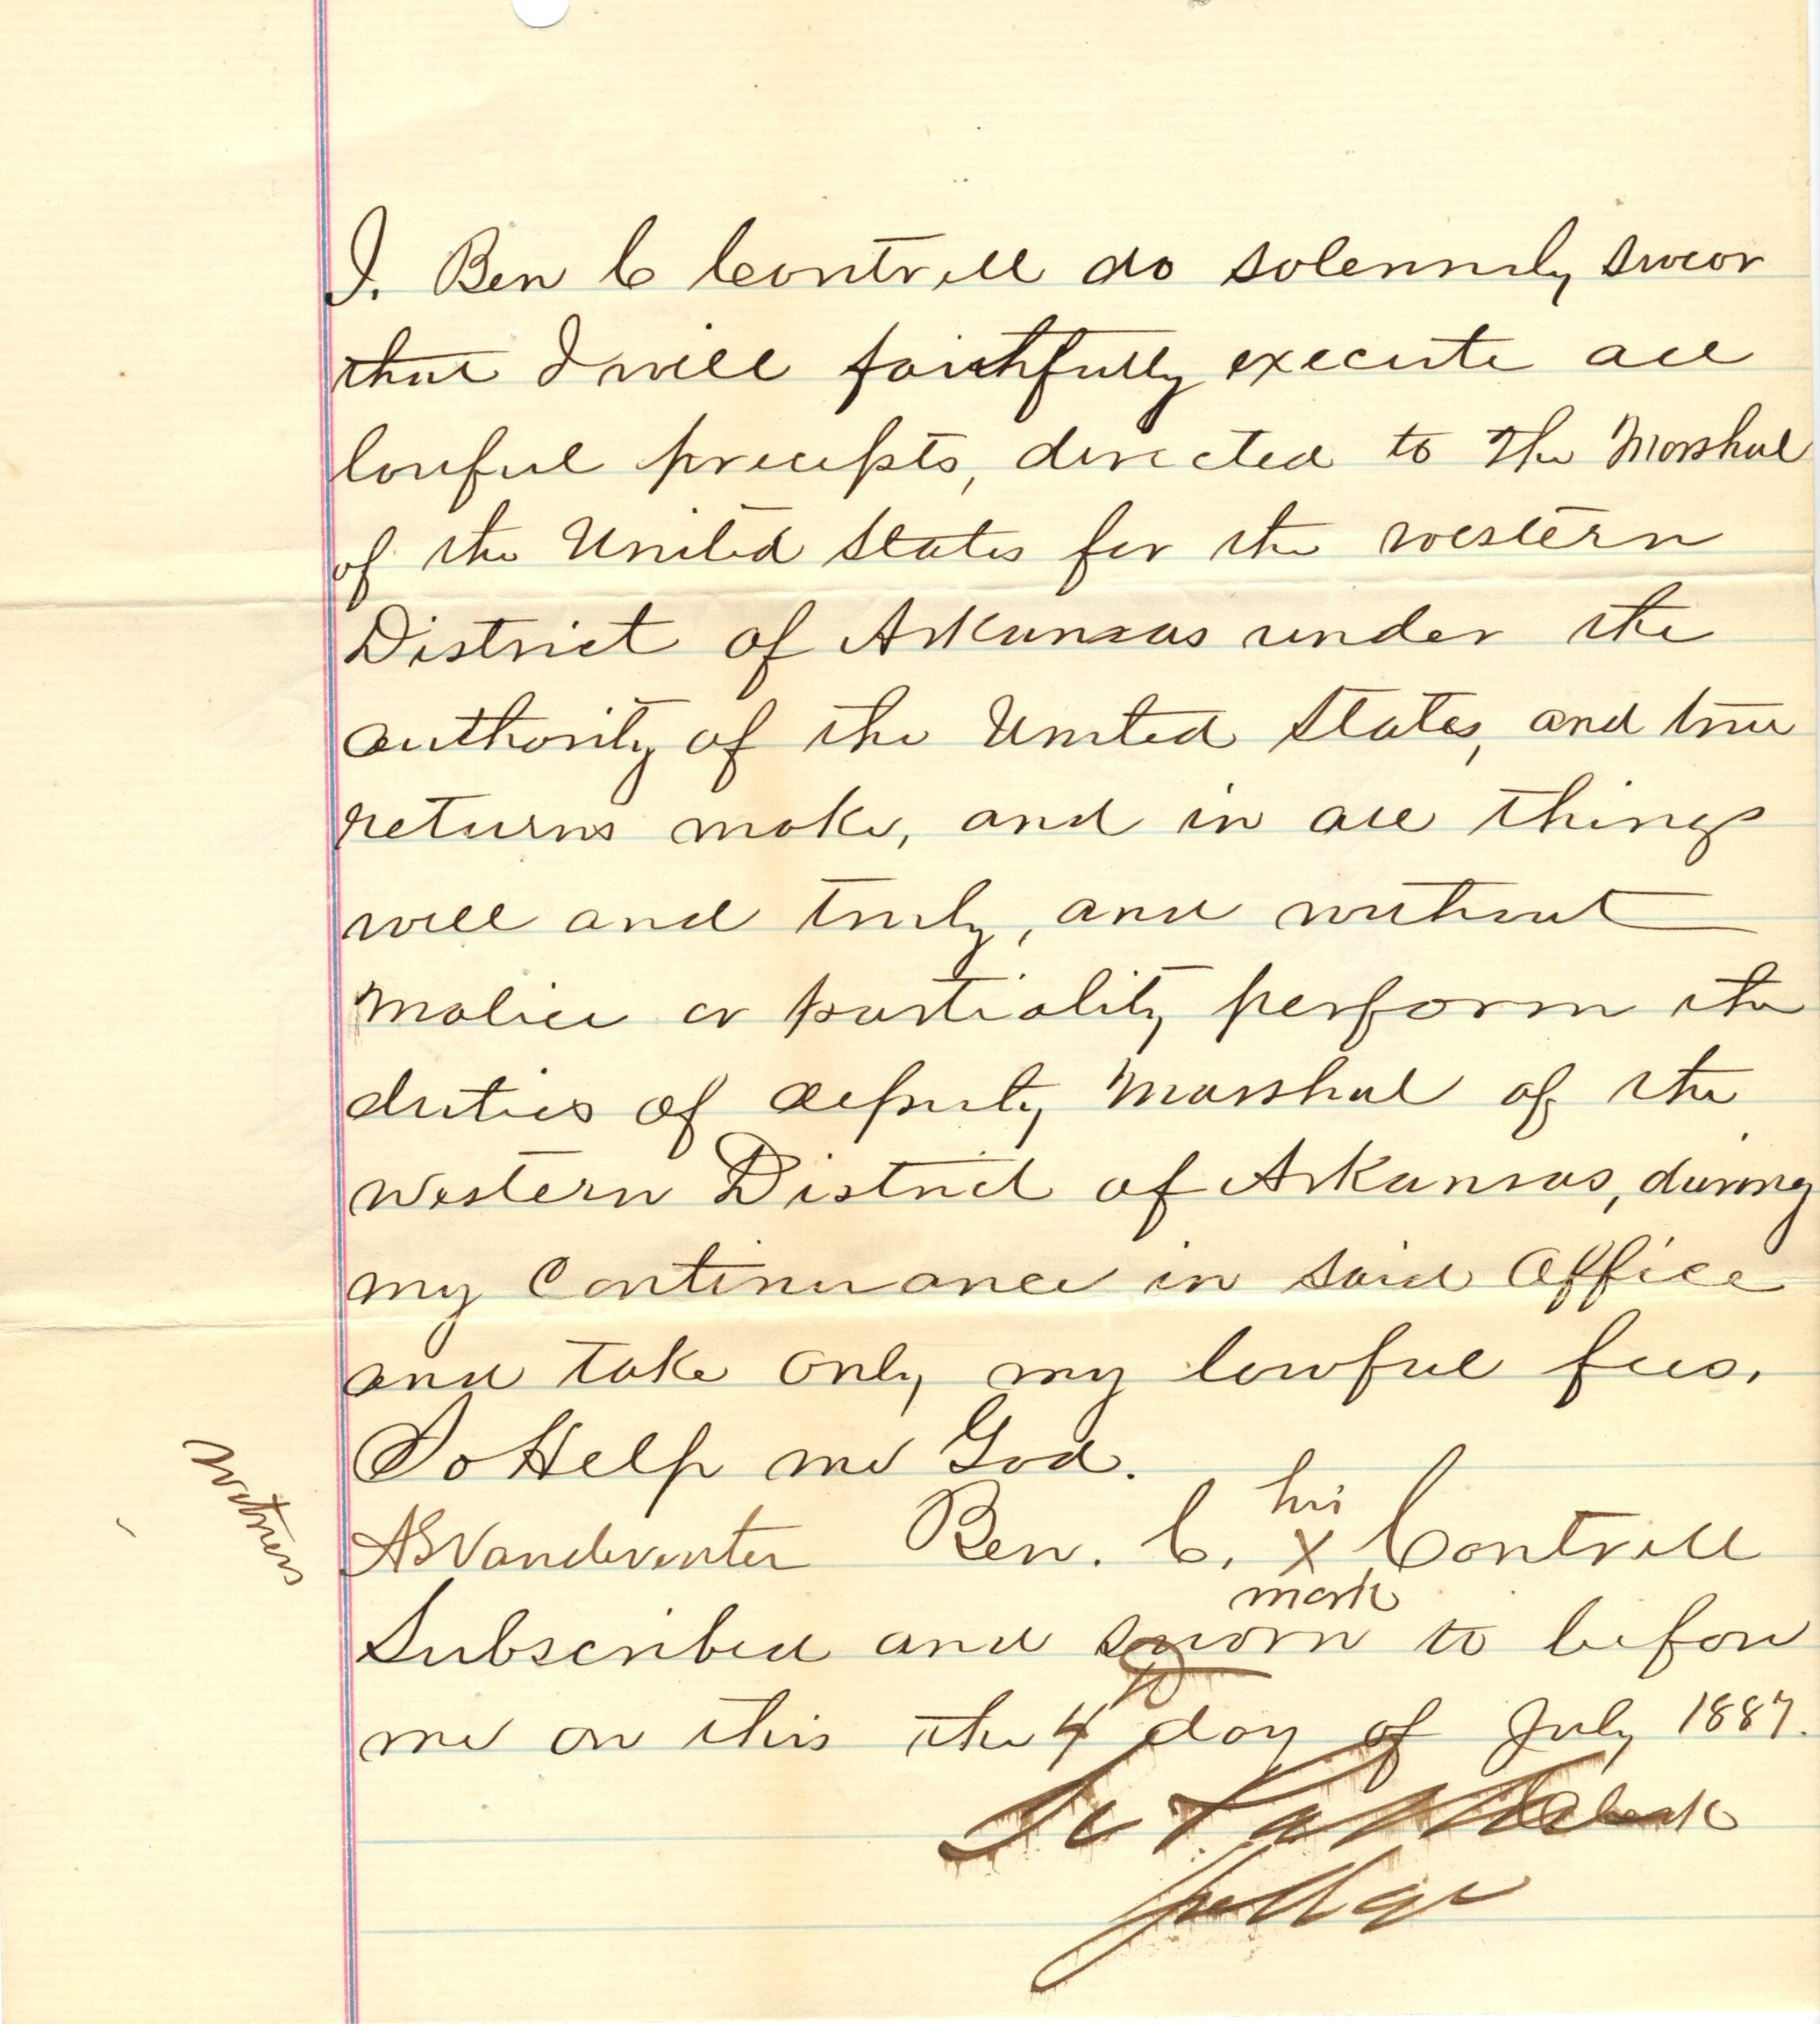 I. Ben C Contrell do solemnly swear
that I will faithfully execute all
lawful precepts, directed to the Marshal
of the United States for the western
District of Arkansas under the
authority of the United States, and true
returns make, and in all things
well and truly, and without
malice or partiality perform the
duties of deputy Marshal of the
western District of Arkansas, during
my Continuance in said Office
and take only my lawful fees.
So Help me God.
Witness
his
A S Vandeventer Ben. C. x Contrell
mark
Subscribed and sworn to before
me on this the 4 day of July 1887.
Clerk
Judge